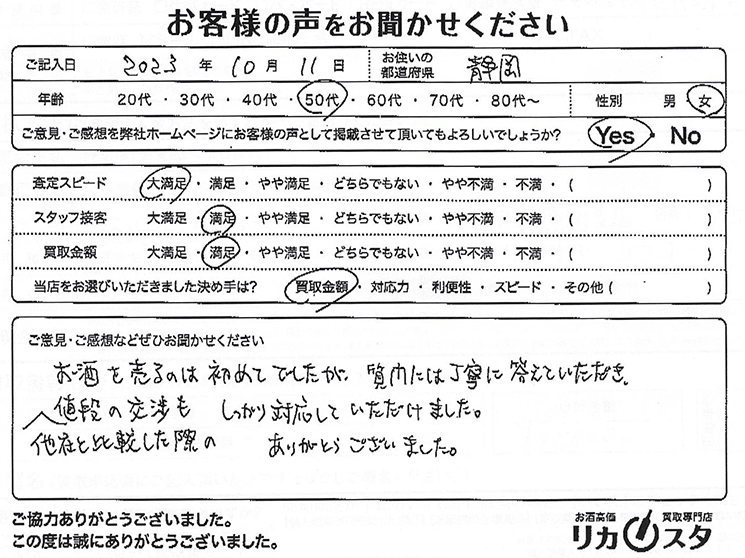 お客様の声をお聞かせください
ご記入日 2023 年 10 月 11 日 お住いの都道府県 静岡
年齢 20代・30代・40代・50代・60代・70代・80代〜 性別 男・女
ご意見・ご感想を弊社ホームページにお客様の声として掲載させて頂いてもよろしいでしょうか? Yes・No
査定スピード 大満足・満足・やや満足・どちらでもない・やや不満・不満・( )
スタッフ接客 大満足・満足・やや満足・どちらでもない・やや不満・不満・( )
買取金額 大満足・満足・やや満足・どちらでもない・やや不満・不満・( )
当店をお選びいただきました決め手は? 買取金額・対応力・利便性・スピード・その他( )
ご意見・ご感想などぜひお聞かせください
お酒を売るのは初めてでしたが、質問には丁寧に答えていただき、
値段の交渉も しっかり対応していただけました。
他店と比較した際の ありがとうございました。
ご協力ありがとうございました。
この度は誠にありがとうございました。
お酒高価 買取専門店
リカスタ